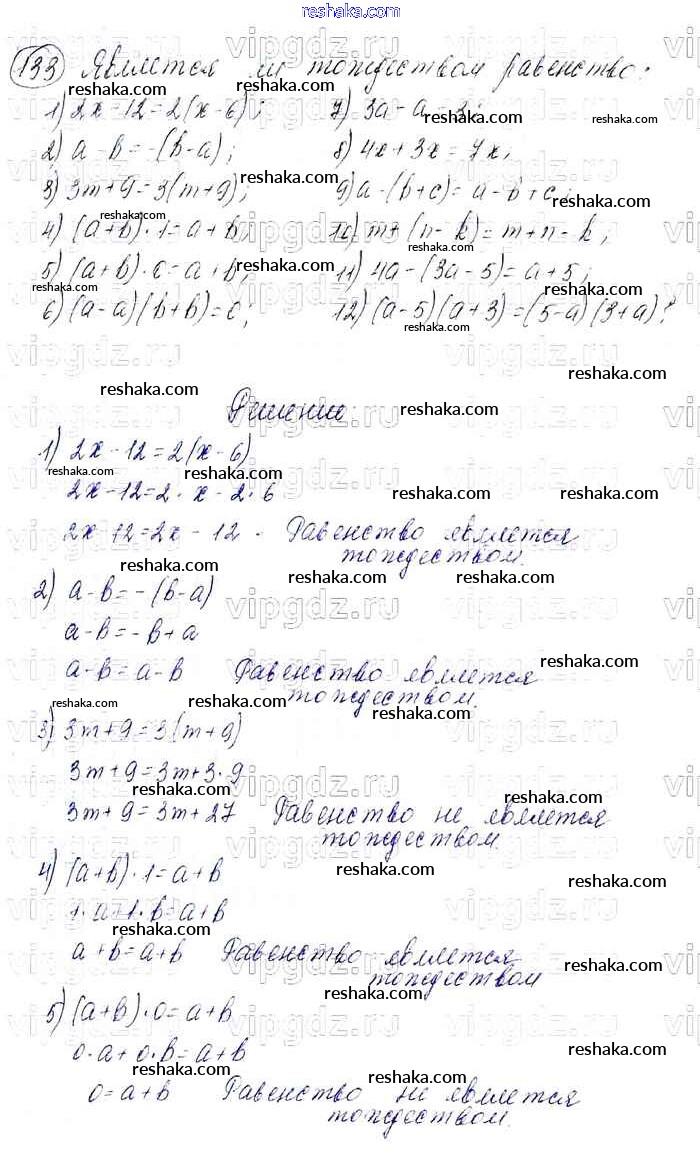 reshaka.com
133 Является ли тождеством равенство:
1) 2x-12=2(x-6); 7) 3a-a=3;
2) a-b=-(b-a); 8) 4x+3x=7x;
3) 3m+9=3(m+9); 9) a-(b+c)=a-b+c;
4) (a+b)·1=a+b; 10) m+(n-k)=m+n-k;
5) (a+b)·0=a+b; 11) 4a-(3a-5)=a+5;
6) (a-a)(b+b)=0; 12) (a-5)(a+3)=(5-a)(3+a)?
Решение
1) 2x-12=2(x-6)
2x-12=2·x-2·6
2x-12=2x-12. Равенство является
тождеством.
2) a-b=-(b-a)
a-b=-b+a
a-b=a-b Равенство является
тождеством.
3) 3m+9=3(m+9)
3m+9=3m+3·9
3m+9=3m+27 Равенство не является
тождеством.
4) (a+b)·1=a+b
1·a+1·b=a+b
a+b=a+b Равенство является
тождеством
5) (a+b)·0=a+b
0·a+0·b=a+b
0=a+b Равенство не является
тождеством.